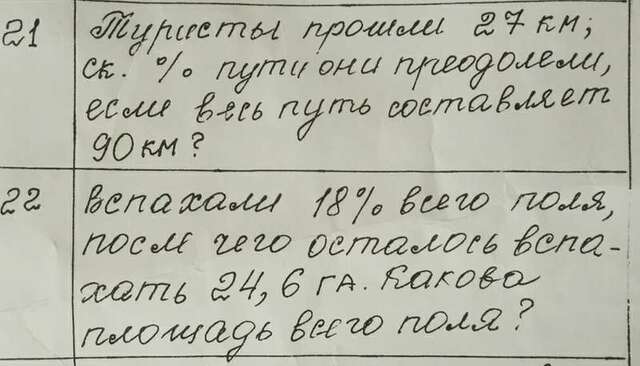 21 Туристы прошли 27 км;
ск. % пути они преодолели,
если весь путь составляет
90 км?
22 Вспахали 18% всего поля,
после чего осталось вспа-
хать 24,6 га. Какова
площадь всего поля?